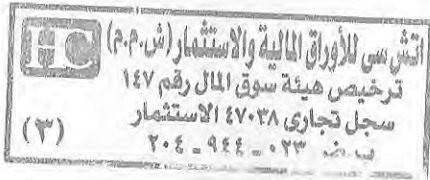 HC
اتش سى للأوراق المالية والاستثمار (ش.م.م)
ترخيص هيئة سوق المال رقم ١٤٧
سجل تجارى ٤٧٠٣٨ الاستثمار
٢٠٤ - ٩٤٤ - ٠٢٣
(٣)